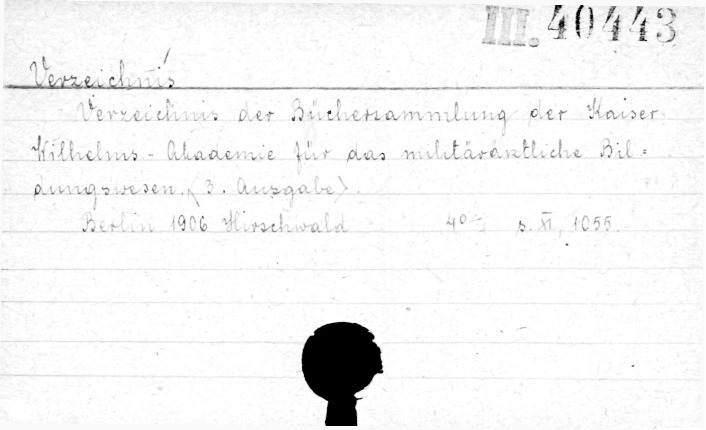 III. 40443
Verzeichnis
Verzeichnis der Büchersammlung der Kaiser
Wilhelms-Akademie für das militärärztliche Bil=
dungswesen. (3. Ausgabe).
Berlin 1906 Hirschwald 4° s. XI, 1055.